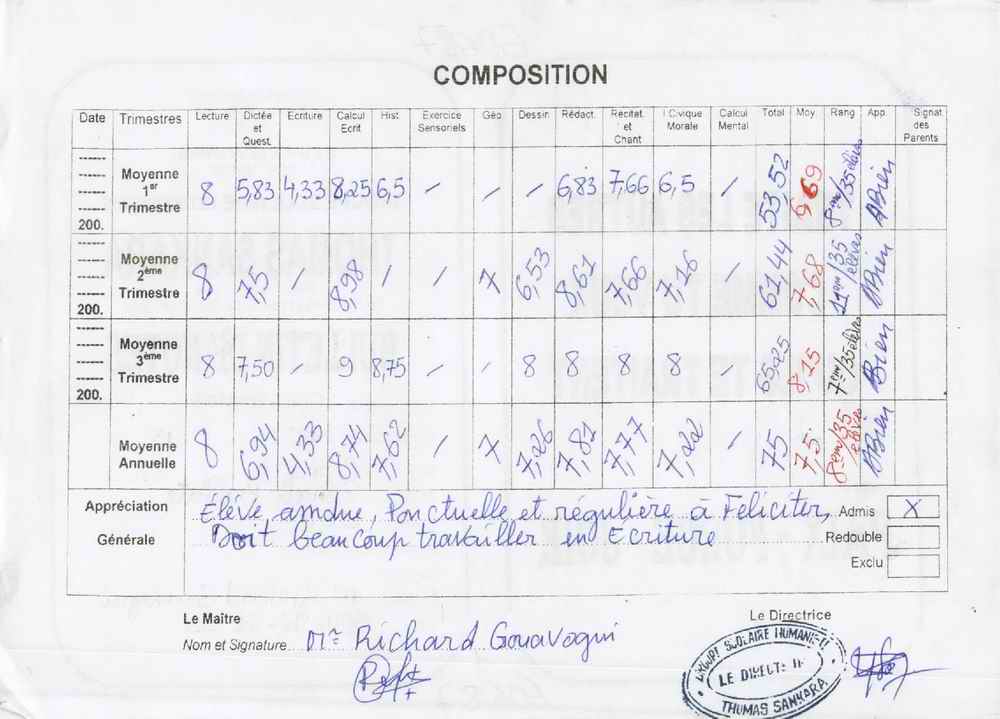 COMPOSITION
Date Trimestres Lecture Dictée et Quest. Ecriture Calcul Ecrit Hist. Exercice Sensoriels Géo Dessin Rédact. Récitat. et Chant I.Civique Morale Calcul Mental Total Moy Rang App. Signat des Parents
200. Moyenne 1er Trimestre 8 5,83 4,33 8,25 6,5 / / / 6,83 7,66 6,5 / 53,52 6,69 8ème/35 élèves ABien
200. Moyenne 2ème Trimestre 8 7,5 / 8,98 / / 7 6,53 8,61 7,66 7,16 / 61,44 7,68 11em/35 élèves ABien
200. Moyenne 3ème Trimestre 8 7,50 / 9 8,75 / / 8 8 8 8 / 65,25 8,15 7ème/35 élèves Bien
Moyenne Annuelle 8 6,94 4,33 8,74 7,62 / 7 7,26 7,81 7,77 7,22 / 75 7,5 8em/35 élèves ABien
Appréciation Générale
Élève, Ponctuelle et régulière à Féliciter,
Doit beaucoup travailler en Ecriture
Admis X
Redouble
Exclu
Le Maître
Nom et Signature Mr Richard Gouavogui
Le Directrice
THOMAS SANKARA